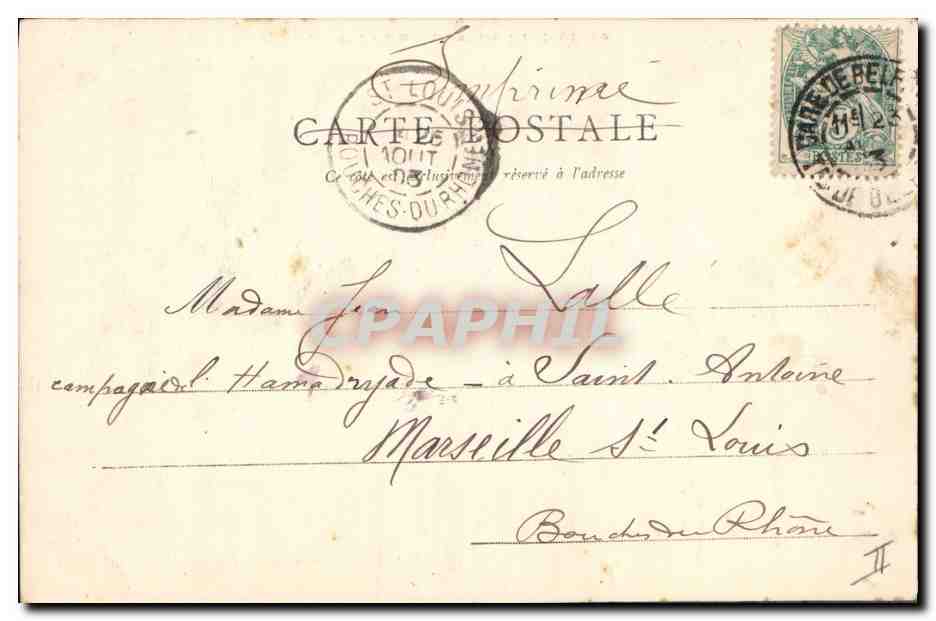 Imprimé
CARTE POSTALE
Ce côté est exclusivement réservé à l'adresse
ST LOUIS
AOUT
03
BOUCHES-DU-RHONE
GARE DE
POSTES
Madame Lallé
campagne de l'Hamadryade - à Saint-Antoine
Marseille St Louis
Bouches du Rhône
II
CPAPHIL